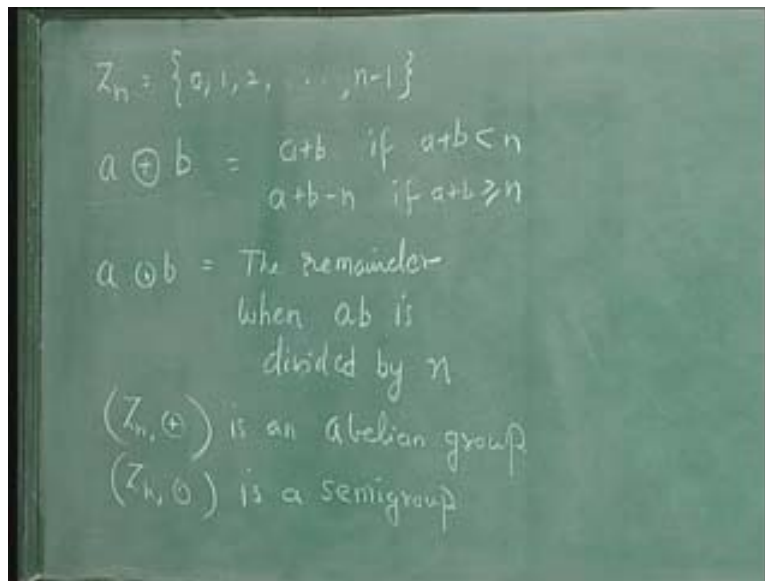 Zn = {0, 1, 2, ..., n-1}
a ⊕ b = a+b if a+b < n
a+b-n if a+b ⩾ n
a ⊙ b = The remainder
when ab is
divided by n
(Zn, ⊕) is an abelian group
(Zn, ⊙) is a semigroup